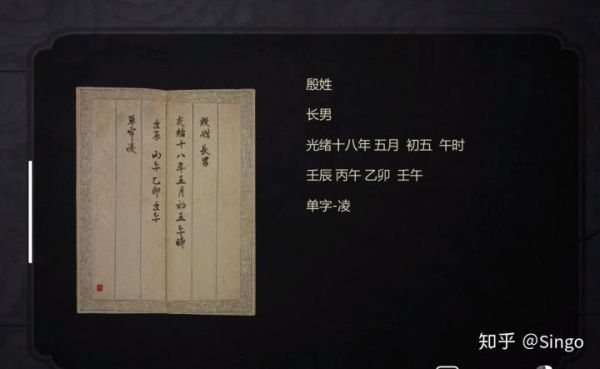 殷姓 長男
光緒十八年五月初五午時
壬辰 丙午 乙卯 壬午
單字凌
殷姓
长男
光绪十八年 五月 初五 午时
壬辰 丙午 乙卯 壬午
单字-凌
知乎 @Singo